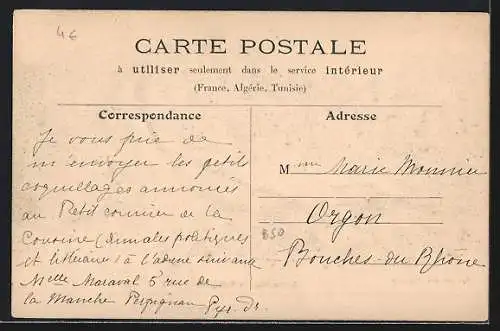 4€
CARTE POSTALE
à utiliser seulement dans le service intérieur
(France, Algérie, Tunisie)
Correspondance
Je vous prie de
m'envoyer les petits
coquillages annoncés
au Petit courrier de la
Couronne (Annales politiques
et littéraires) à l'adresse suivante
Melle Maraval 5 rue de
la Manche Perpignan Pyr. Or
Adresse
Mme Marie Monnier
Orgon
B50
Bouches-du-Rhône